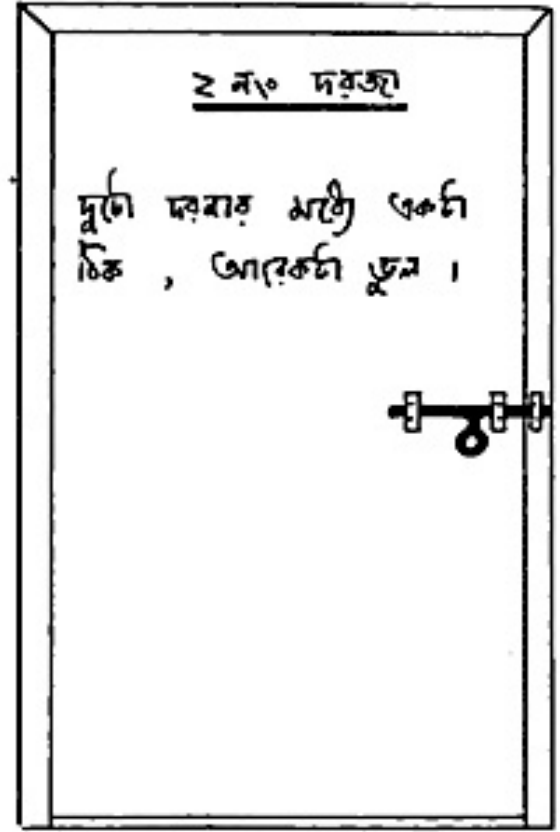 ২ নং দরজা
দুটো দরজার মধ্যে একটা
ঠিক, আরেকটা ভুল।